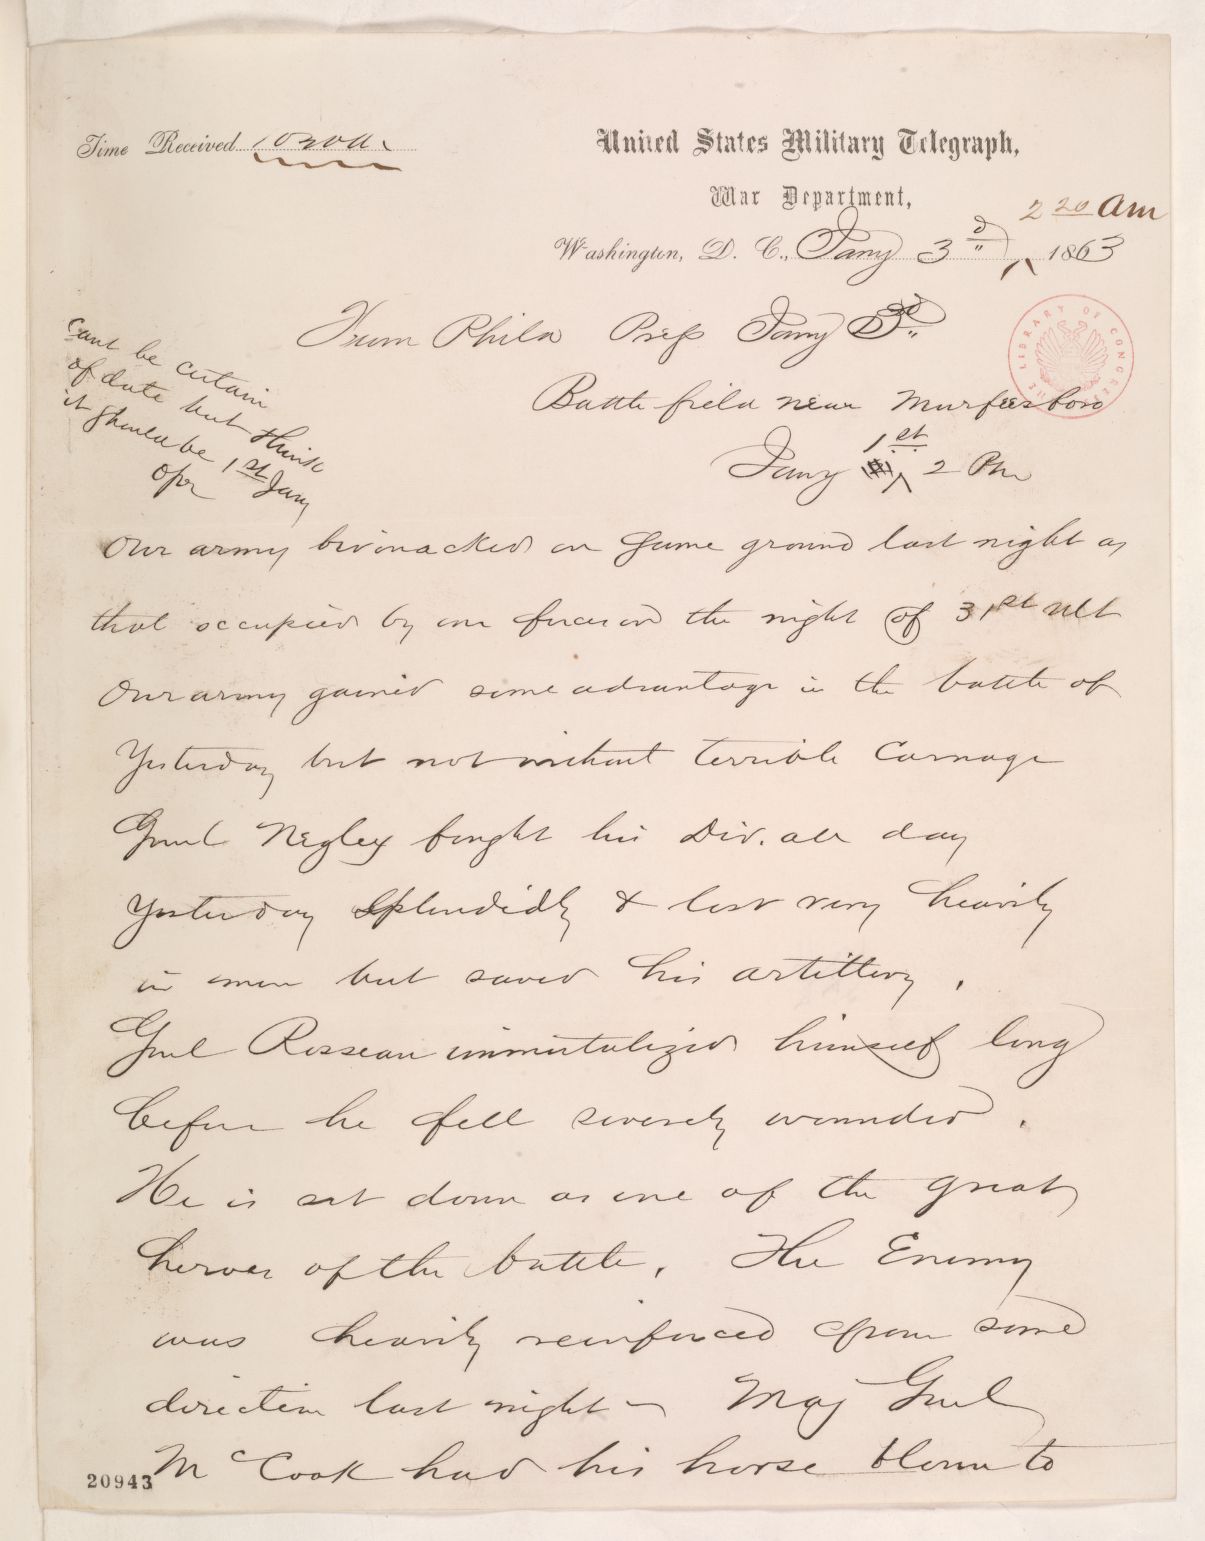 Time Received
United States Military Telegraph,
War Department,
2 20 Am
Washington, D. C., Jany 3d 1863
From Phila Press Jany 3d
Cant be certain
of date but think
it should be 1st Jany
Opr
THE LIBRARY OF CONGRESS
Battle field near Murfeesboro
Jany 1st 2 Pm
Our army bivouacked on same ground last night as
that occupied by our forces on the night of 31st ult
Our army gained some advantage in the battle of
Yesterday but not without terrible Carnage
Genl Negley fought his Div. all day
yesterday splendidly & lost very heavily
in men but saved his artillery.
Genl Rosseau immortalized himself long
before he fell severely wounded.
He is set down as one of the great
heroes of the battle. The Enemy
was heavily reinforced from some
direction last night – Maj Genl
McCook had his horse blown to
20943